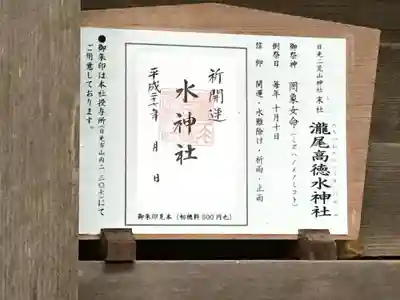 日光二荒山神社 末社
瀧尾高徳水神社
御祭神 罔象女命(ミズハノメノミコト)
例祭日 毎年 十月十日
信仰 開運・水難除け・祈雨・止雨
祈開運
水神社
平成二十 年 月 日
御朱印見本(初穂料500円也)
●御朱印は本社授与所(日光市山内二三〇七)にて
ご用意しております。